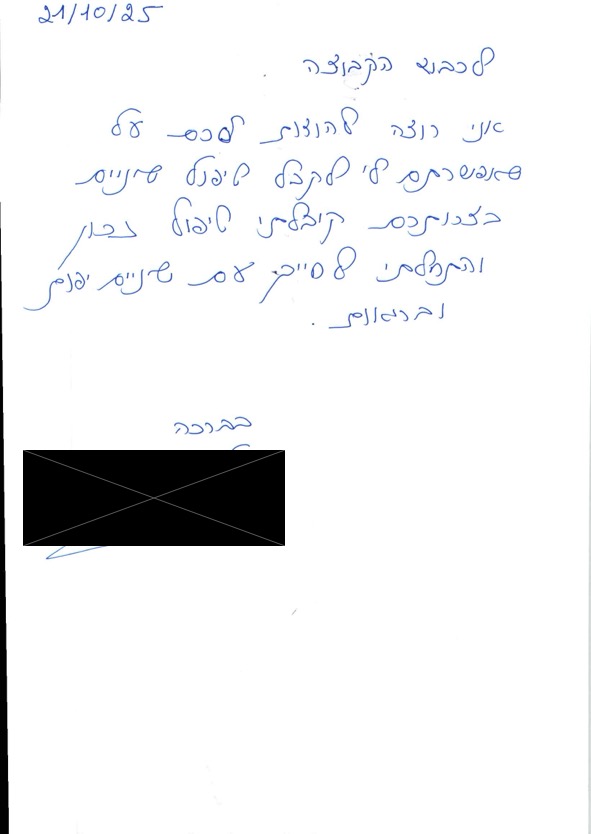 21/10/25
לכבוד הקבוצה
אני רוצה להודות לכם על
שאפשרתם לי לקבל טיפול שיניים
בזכותכם קיבלתי טיפול נכון
והתחלתי לחייך עם שיניים יפות
ובריאות.
בברכה